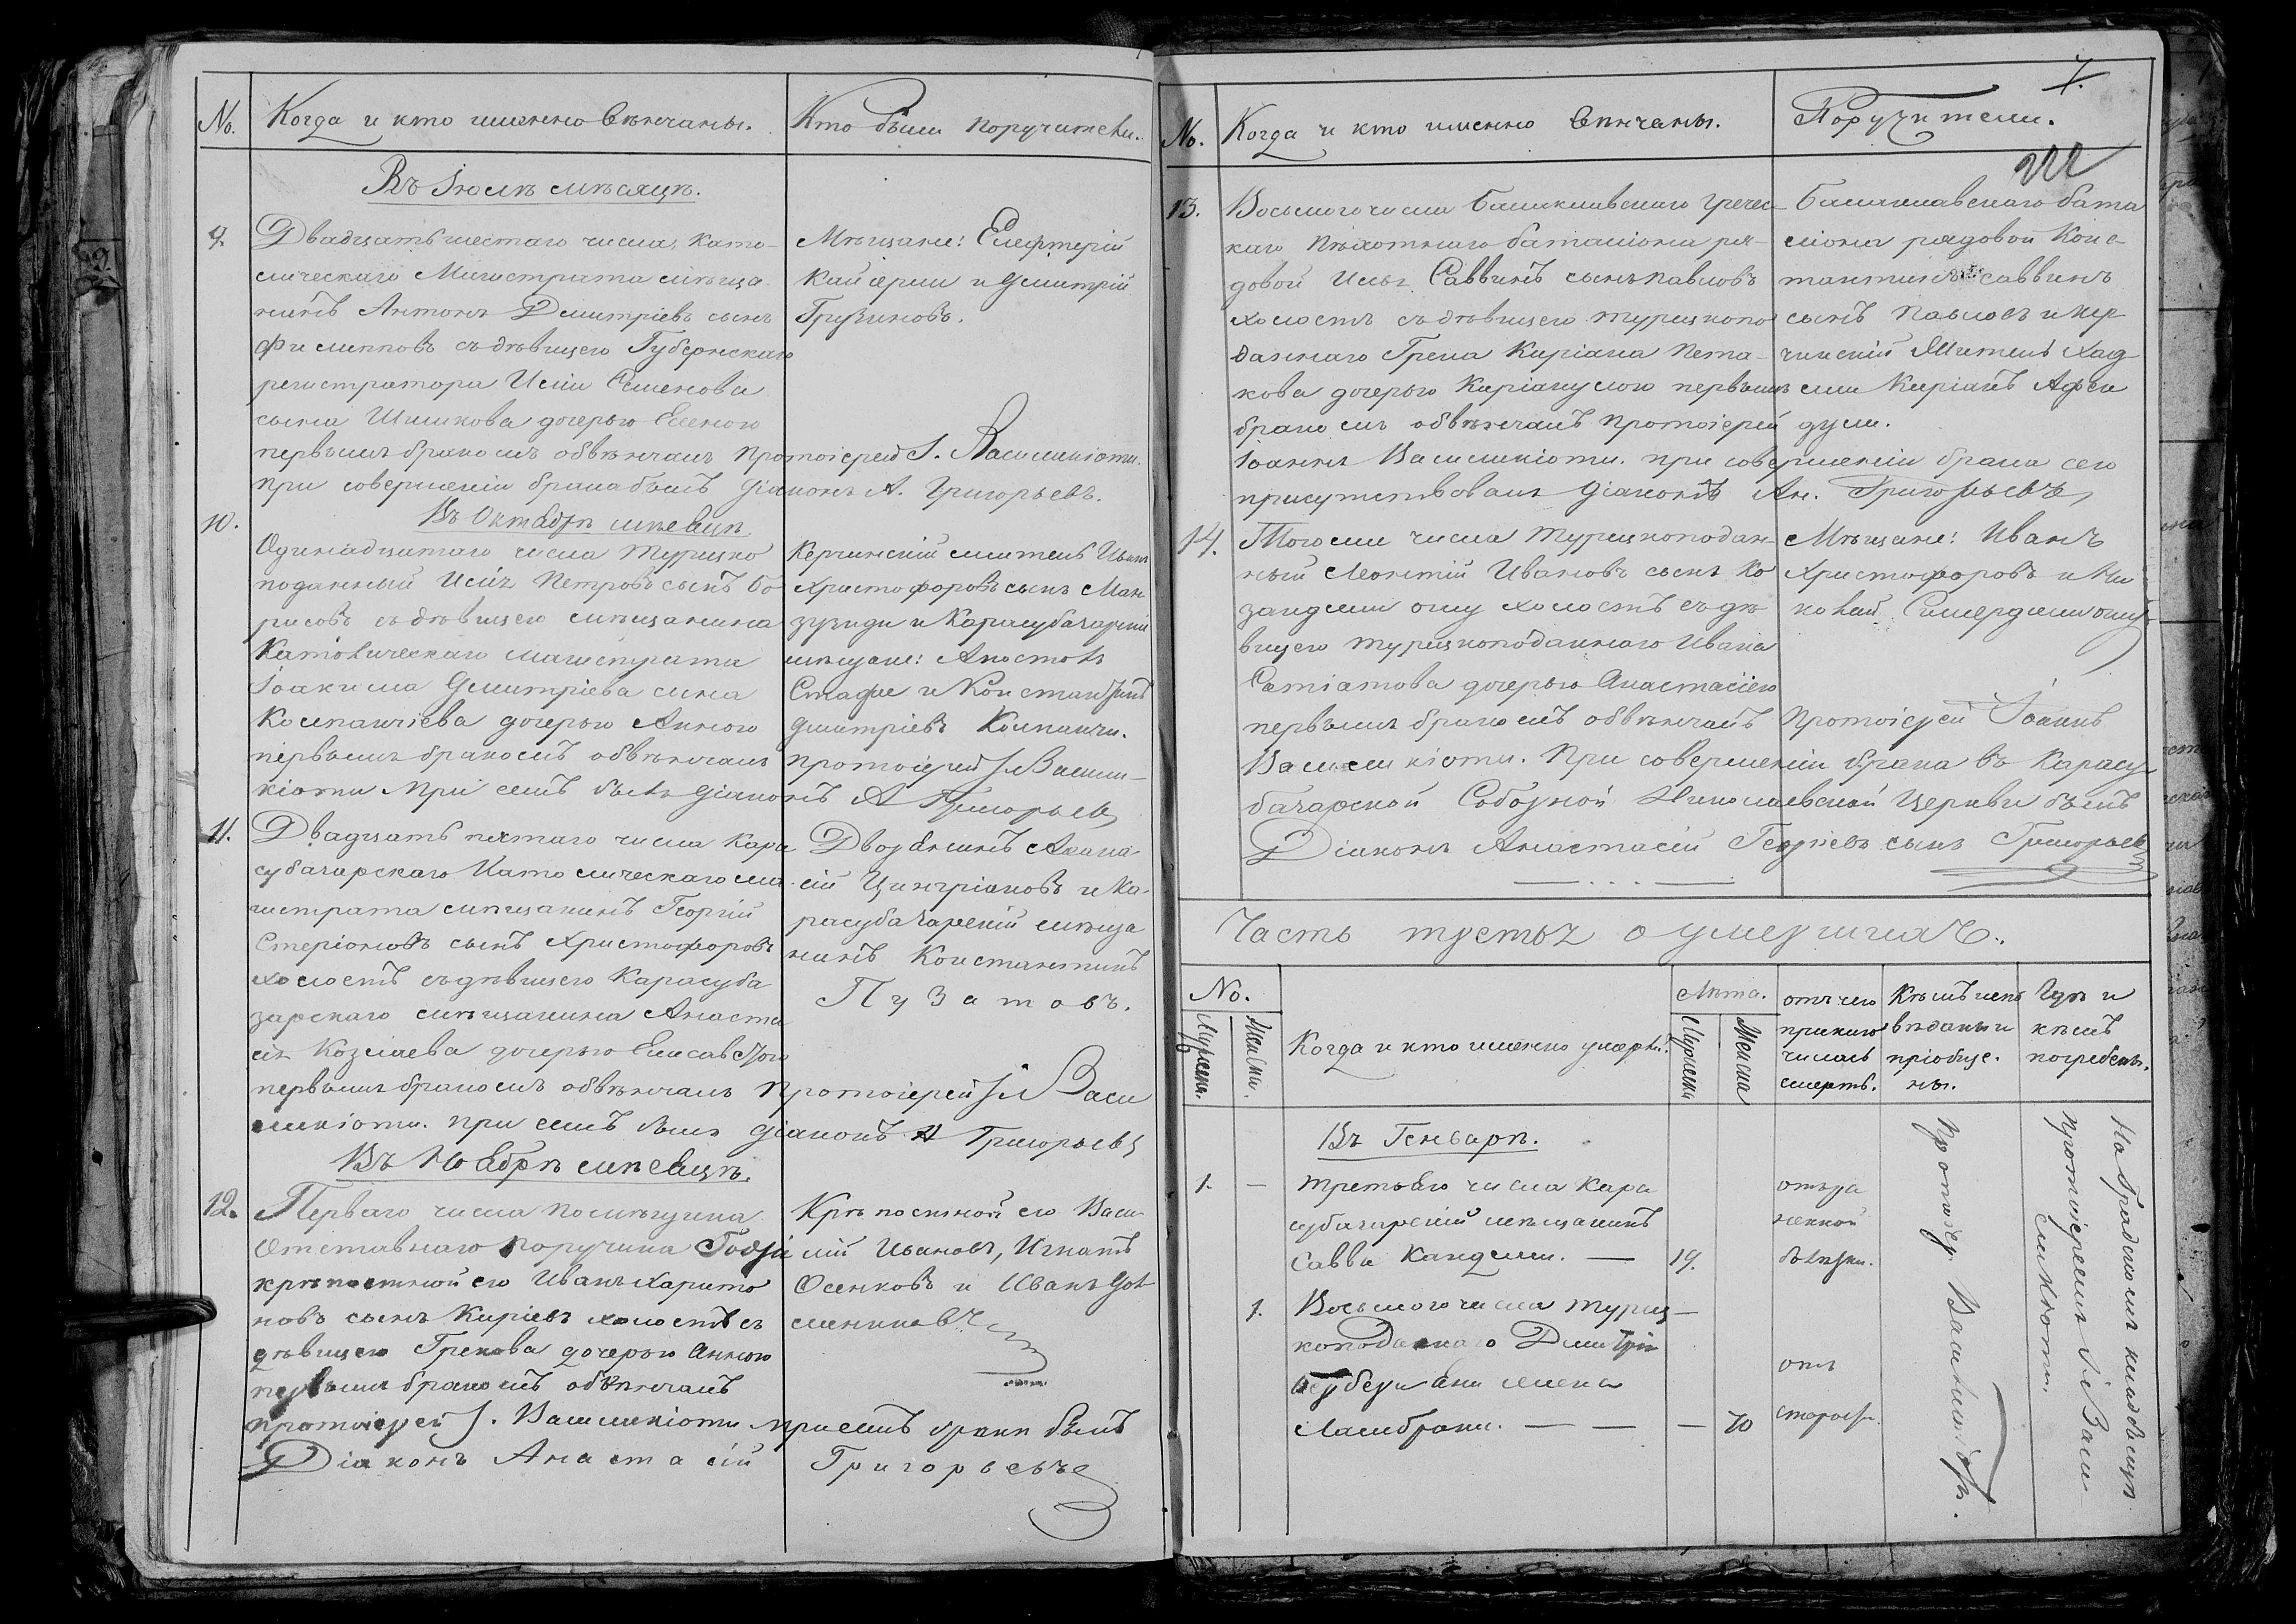 No.
Когда и кто именно вѣнчаны.
Кто были поручители.
Въ Іюлѣ мѣсяцѣ.
9.
Двадцать шестаго числа, Като-
лическаго Магистрата мѣща
нинъ Антонъ Дмитріевъ сынъ
Филипповъ съ дѣвицею Губернскаго
регистратора Иліи Семенова
сына Шишкова дочерью Еленою
первымъ бракомъ обвѣнчалъ Протоіерей І. Василикіоти.
при совершеніи брака былъ діаконъ А. Григорьевъ.
Мѣщане: Елефтерій
и Дмитрій
Грузиновъ.
Въ Октябрѣ мѣсяцѣ
10.
Одинадцатаго числа Турецко
поданный Илія Петровъ сынъ Бо
рисовъ съ дѣвицею мѣщанина
Католическаго магистрата
Іоакима Дмитріева сина
Компанчіева дочерью Анною
первымъ бракомъ обвѣнчалъ протоіерей І. Васили-
кіоти при семъ былъ діаконъ А Григорьевъ
Керчинскій житель Иванъ
Христофоровъ сынъ Ман
и Карасубазарскій
мѣщане: Апостолъ
Стафие и Константинъ
Дмитріевъ Компанчи.
11.
Двадцать пятаго числа Кара
субазарскаго Католическаго ма
гистрата мѣщанинъ Георгій
Стеріоновъ сынъ Христофоровъ
холостъ съ дѣвицею Карасуба
зарскаго мѣщанина Анаста
са Козмаева дочерью Елисаветою
первымъ бракомъ обвѣнчалъ Протоіерей І. Васи
ликіоти. при семъ былъ діаконъ А Григорьевъ
Дворянинъ Афана
сій и Ка-
расубазарскій мѣща
нинъ Константинъ
Пузатовъ.
Въ Ноябрѣ мѣсяцѣ.
12.
Перваго числа помѣщика
Отставнаго поручика
крѣпостной его Иванъ Харито
новъ сынъ Киріевъ холостъ съ
дѣвицею Грекова дочерью Анною
первымъ бракомъ обвѣнчалъ
протоіерей І. Василикіоти при семъ бракѣ былъ
Діаконъ Анастасій Григорьевъ
Крѣпосной его Васи
лій Ивановъ, Игнатъ
Осенковъ и Иванъ

7.
No.
Когда и кто именно вѣнчаны.
Поручители.
13.
Восьмого числа Балаклавскаго Гречес-
каго пѣхотнаго баталіона ря-
довой Илья Саввинъ сынъ Павловъ
холостъ съ дѣвицею турецкопо
даннаго Грека Киріака Пета-
кова дочерью Киріакулою первымъ
бракомъ обвѣнчалъ Протоіерей
Іоаннъ Василикіоти. при совершеніи брака сего
присутствовалъ діаконъ Ан. Григорьевъ
Балаклавскаго бата
ліона рядовой Конс-
тантинъ Саввинъ
сынъ Павловъ и кер
чинскій житель Хад
жи Киріакъ Афен
дули.
14.
Тогоже числа Турецкоподан-
ный Леонтій Ивановъ сынъ Ко
холостъ съ дѣ
вицею турецкоподаннаго Ивана
дочерью Анастасіею
первымъ бракомъ обвѣнчалъ Протоіерей Іоаннъ
Василикіоти. При совершеніи брака въ Карасу
базарской Соборной Николаевской Церкви былъ
Діаконъ Анастасій Георгіевъ сынъ Григорьевъ
Мѣщане: Иванъ
Христофоровъ и Ни
колай
Часть третья о умершихъ.
No.
Мужска.
Женска.
Когда и кто именно умерли.
Лѣта.
Мужска
Женска
отъ чего
приклю
чилась
смерть.
Кѣмъ испо
вѣданы и
пріобще.
ны.
Гдѣ и
кѣмъ
погребены.
Въ Генварѣ.
1. —
третьяго числа Кара
субазарскій мѣщанинъ
Савва Кандеми. — 19.
бѣлѣзни.
1.
Восьмого числа турец—
коподаннаго Дмитрія
жена
Ламбрани. — — — 70
отъ
старости.
Протоіер. Василикіоти.
На Градскомъ кладбищѣ
протоіереемъ І. Васи-
ликіоти.